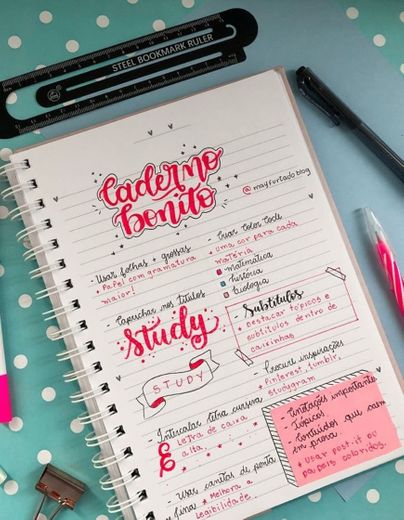 STEEL BOOKMARK RULER
Caderno
bonito
@mayfurtado.blog
- Usar folhas + grossas
* Papel com gramatura
maior!
- Criar Color Code
* uma cor para cada
matéria
matemática
história
biologia
- Caprichar nos títulos
Study
STUDY
Subtítulos
* Destacar tópicos e
subtítulos dentro de
caixinhas
- Procurar inspirações
* Pinterest, tumblr,
studygram
- Intercalar letra cursiva
e letra de caixa
alta
- Usar canetas de ponta
fina: * Melhora a
legibilidade
- Anotações importantes
- Tópicos
- Conteúdos que caem
em prova.
* Usar post-it ou
papéis coloridos.